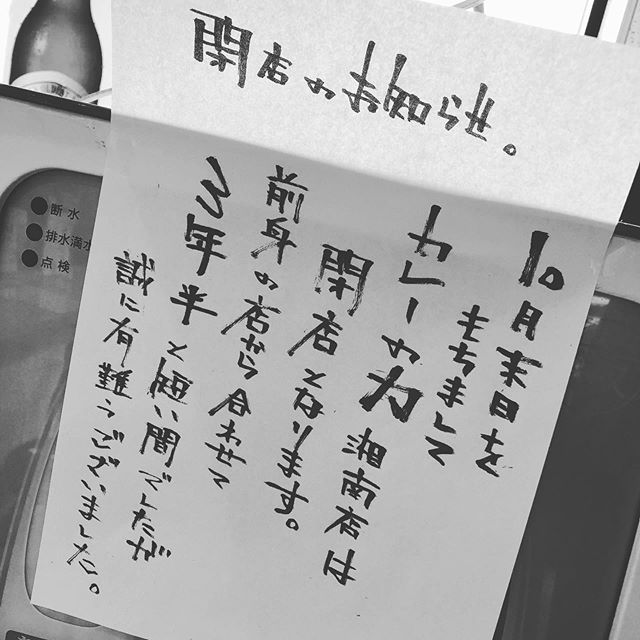 閉店のお知らせ。
10月末日を
もちまして
カレーの力 湘南店は
閉店となります。
前身の店から合わせて
3年半と短い間でしたが
誠に有難うございました。
断水
排水満水
点検